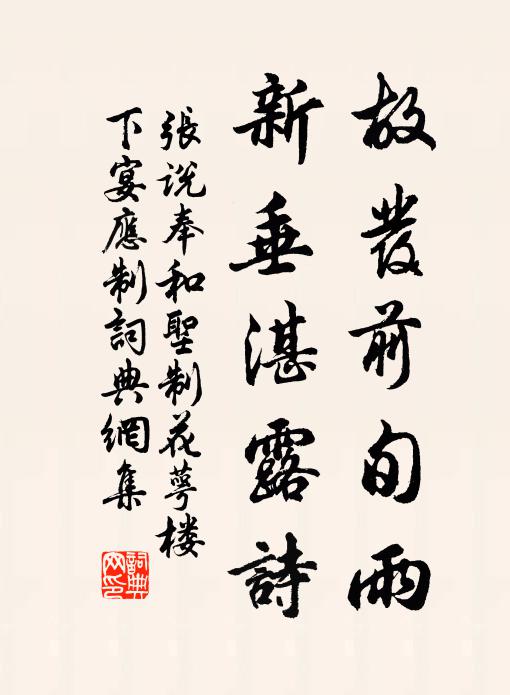 故發前旬雨
新垂湛露詩
張说奉和聖制花萼楼
下宴應制詞典網集
詞典
网印